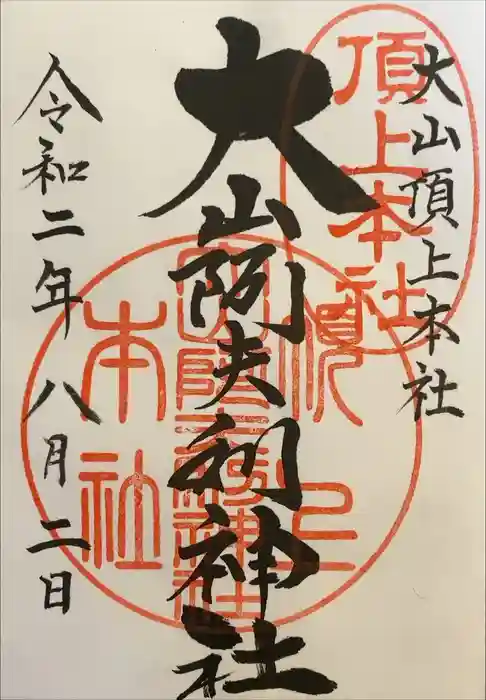 大山頂上本社
頂上本社
大山阿夫利神社
頂上
本社
令和二年八月二日